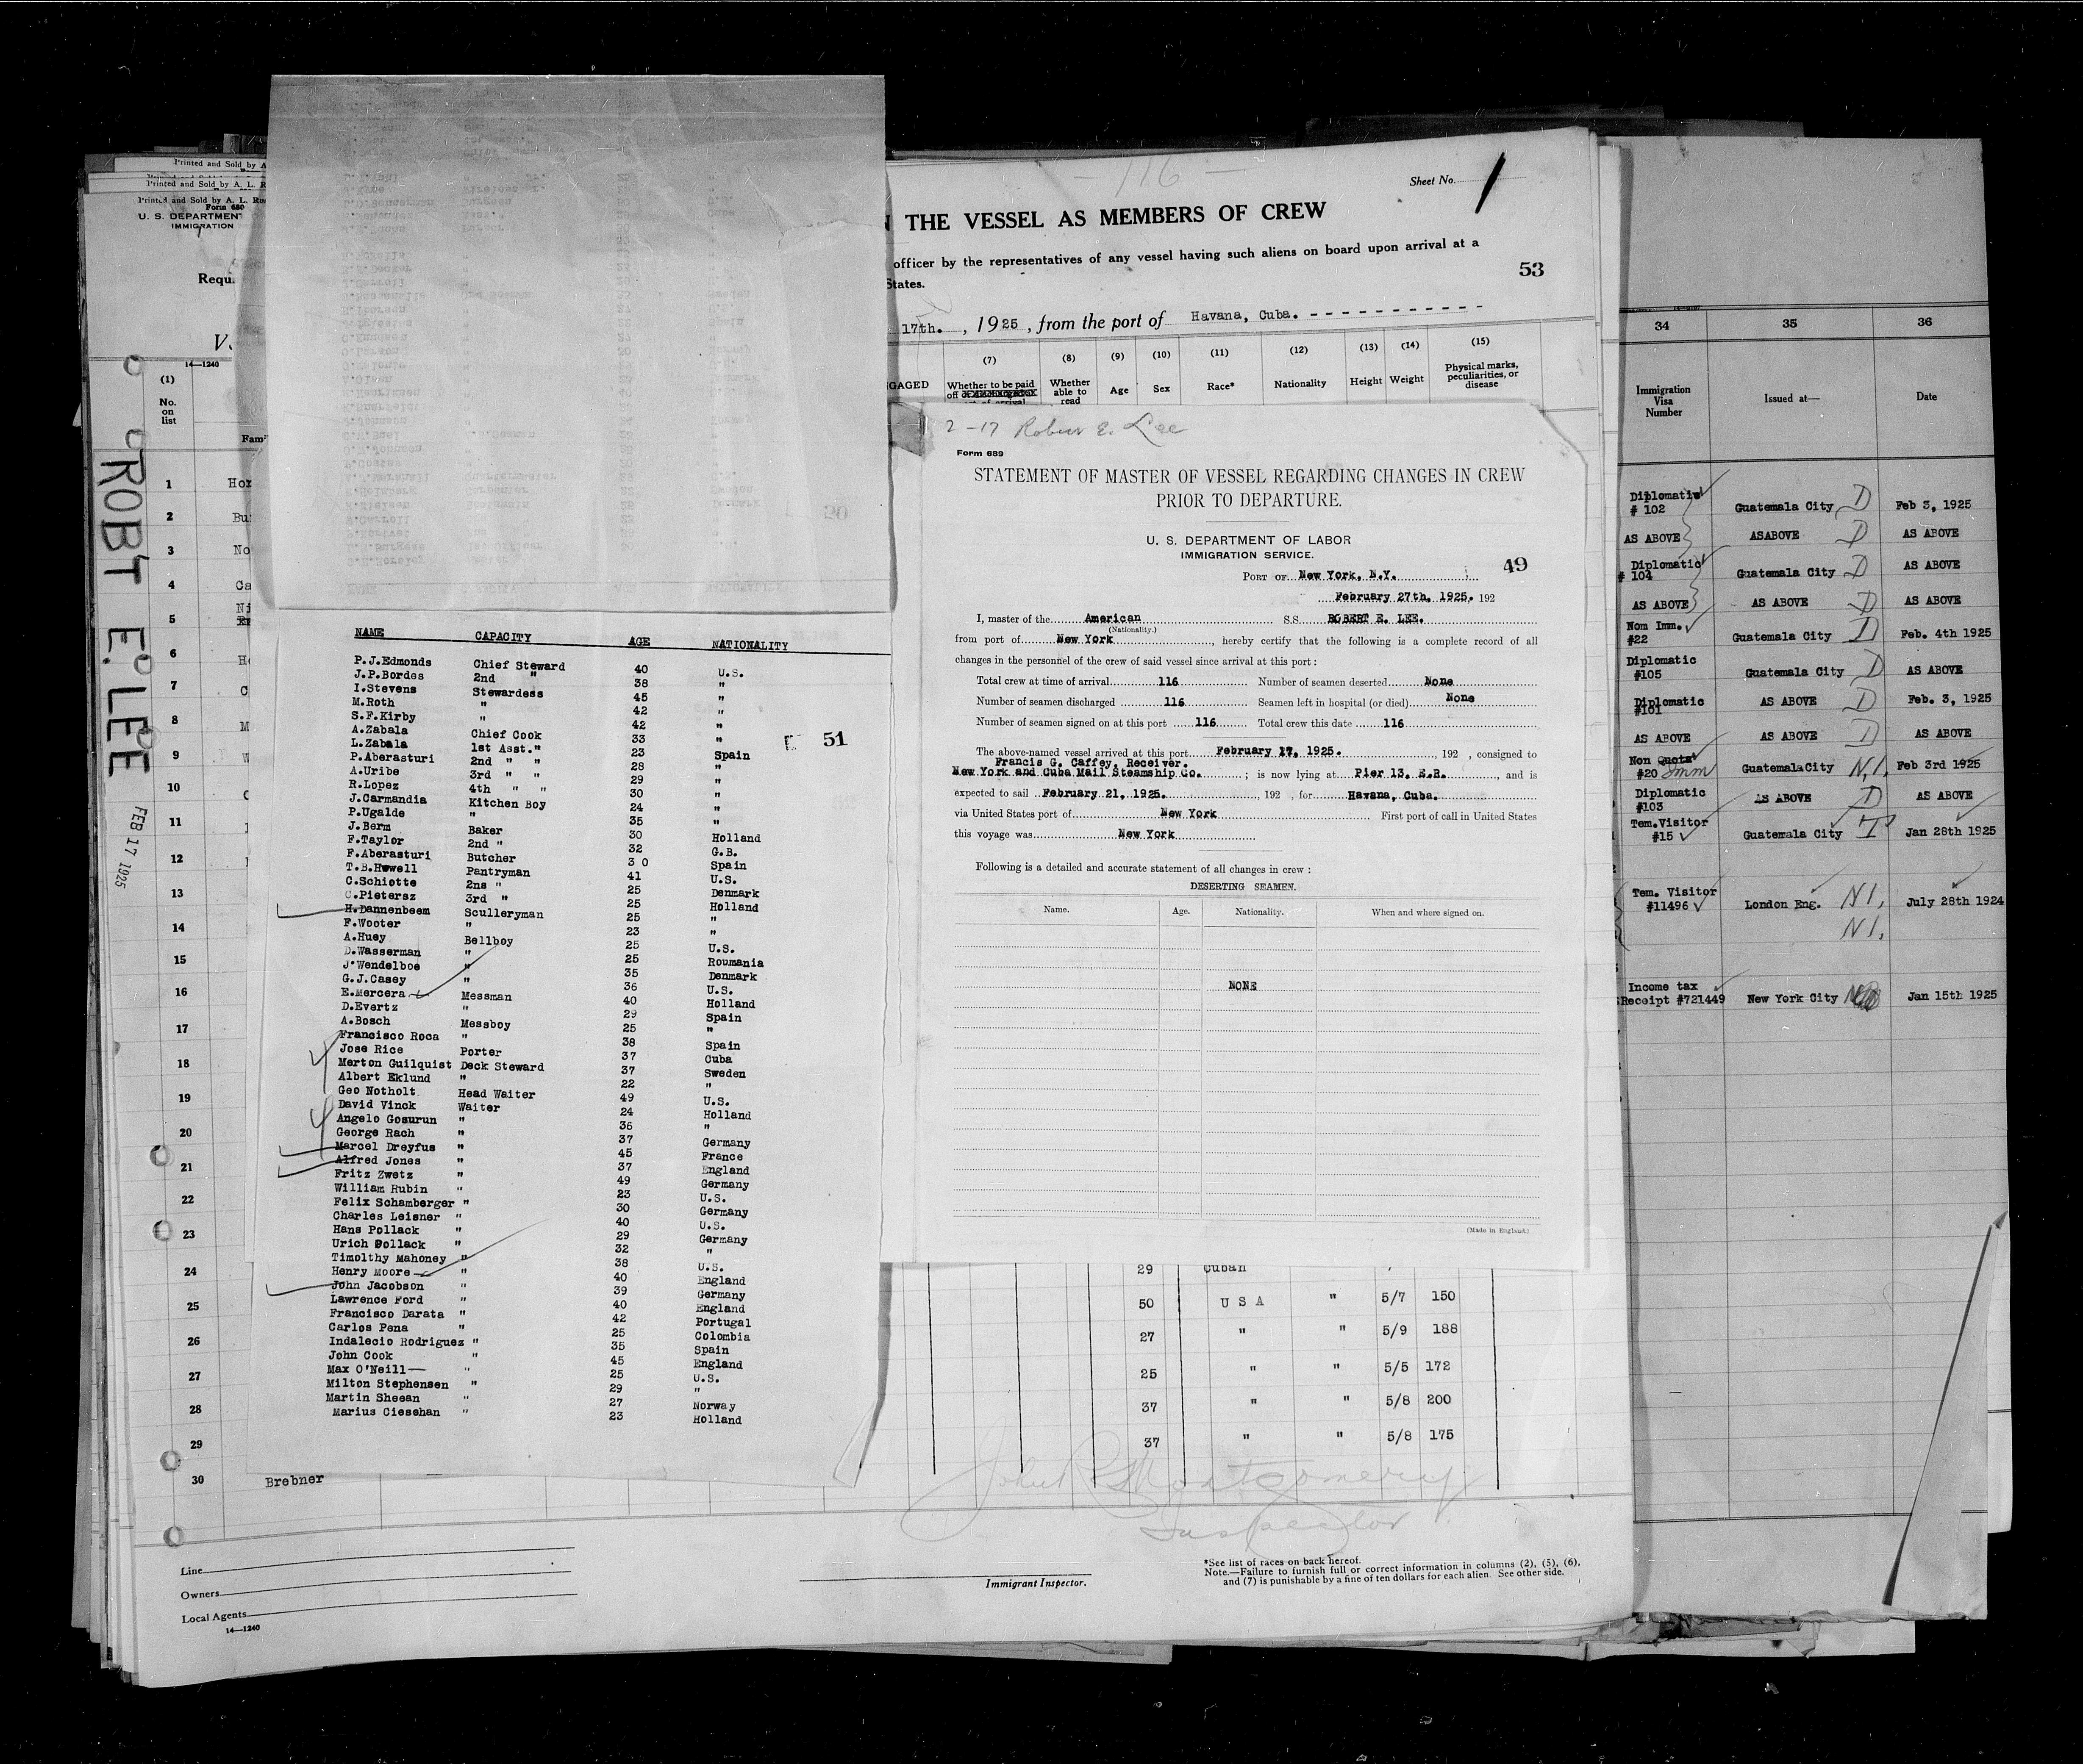 Printed and Sold by A
Printed and Sold by A. L. R
Printed and Sold by A. L. Ru
Form 680
U. S. DEPARTMENT
IMMIGRATION
Requ
14—1240
(1)
No.
on
list
Fam
ROBT E. LEE
FEB 17 1925
1 Hor
2 Bu
3 No
4 Ca
5 Ni
6 He
7 C
8 M
9 W
10 C
11
12
13
14
15
16
17
18
19
20
21
22
23
24
25
26
27
28
29
30 Brebner
Line
Owners
Local Agents
14—1240
NAME CAPACITY AGE NATIONALITY
P.J.Edmonds Chief Steward 40 U.S.
J.P.Bordes 2nd " 38 "
I.Stevens Stewardess 45 "
M.Roth " 42 "
S.F.Kirby " 42 "
A.Zabala Chief Cook 33 "
L.Zabala 1st Asst." 23 Spain
P.Aberasturi 2nd " " 28 "
A.Uribe 3rd " " 29 "
R.Lopez 4th " " 30 "
J.Carmandia Kitchen Boy 24 "
P.Ugalde " 35 "
J.Berm Baker 30 Holland
F.Taylor 2nd " 32 G.B.
F.Aberasturi Butcher 3 0 Spain
T.B.Howell Pantryman 41 U.S.
C.Schiotte 2ns " 25 Denmark
C.Pietersz 3rd " 25 Holland
H.Dannenbeem Sculleryman 25 "
F.Wooter " 23 "
A.Huey Bellboy 25 U.S.
D.Wasserman " 25 Roumania
J'Wendelboe " 35 Denmark
G.J.Casey " 36 U.S.
E.Mercera Messman 40 Holland
D.Evertz " 29 Spain
A.Bosch Messboy 25 "
Francisco Roca " 38 Spain
Jose Rice Porter 37 Cuba
Merton Guilquist Deck Steward 37 Sweden
Albert Eklund " 22 "
Geo Notholt Head Waiter 49 U.S.
David Vinck Waiter 24 Holland
Angelo Gosurun " 36 "
George Rach " 37 Germany
Marcel Dreyfus " 45 France
Alfred Jones " 37 England
Fritz Zwetz " 49 Germany
William Rubin " 23 U.S.
Felix Schamberger " 30 Germany
Charles Leisner " 40 U.S.
Hans Pollack " 29 Germany
Urich Pollack " 32 "
Timolthy Mahoney " 38 U.S.
Henry Moore " 40 England
John Jacobson " 39 Germany
Lawrence Ford " 40 England
Francisco Darata " 42 Portugal
Carlos Pena " 25 Colombia
Indalecio Rodriguez " 35 Spain
John Cook " 45 England
Max O'Neill — " 25 U.S.
Milton Stephensen " 29 "
Martin Sheean " 27 Norway
Marius Ciesehan " 23 Holland
51
- 116 -
Sheet No. 1
N THE VESSEL AS MEMBERS OF CREW
officer by the representatives of any vessel having such aliens on board upon arrival at a
States.
53
17th. , 1925 , from the port of Havana, Cuba. - - - - - - - - - - -
(7) (8) (9) (10) (11) (12) (13) (14) (15)
GAGED Whether to be paid off Whether able to read Age Sex Race* Nationality Height Weight Physical marks, peculiarities, or disease
2-17 Robert E. Lee
Form 689
STATEMENT OF MASTER OF VESSEL REGARDING CHANGES IN CREW
PRIOR TO DEPARTURE.
U. S. DEPARTMENT OF LABOR
IMMIGRATION SERVICE.
49
PORT OF New York, N.Y.
February 27th, 1925. 192
I, master of the American S.S. ROBERT E. LEE.
(Nationality.)
from port of New York, hereby certify that the following is a complete record of all
changes in the personnel of the crew of said vessel since arrival at this port :
Total crew at time of arrival 116 Number of seamen deserted None
Number of seamen discharged 116 Seamen left in hospital (or died) None
Number of seamen signed on at this port 116 Total crew this date 116
The above-named vessel arrived at this port February 17, 1925. , 192 , consigned to
Francis G. Caffey, Receiver.
New York and Cuba Mail Steamship Co. ; is now lying at Pier 13, E.R. , and is
expected to sail February 21, 1925. , 192 , for Havana, Cuba.
via United States port of New York First port of call in United States
this voyage was New York
Following is a detailed and accurate statement of all changes in crew :
DESERTING SEAMEN.
Name. Age. Nationality. When and where signed on.
NONE
(Made in England.)
29 Cuban
50 U S A " 5/7 150
27 " " 5/9 188
25 " " 5/5 172
37 " " 5/8 200
37 " " 5/8 175
John R Montgomery
Inspector
Immigrant Inspector.
*See list of races on back hereof.
Note.—Failure to furnish full or correct information in columns (2), (5), (6),
and (7) is punishable by a fine of ten dollars for each alien. See other side.
34 35 36
Immigration Visa Number Issued at— Date
Diplomatic # 102 Guatemala City D Feb 3, 1925
AS ABOVE ASABOVE D AS ABOVE
Diplomatic # 104 Guatemala City D AS ABOVE
AS ABOVE AS ABOVE D AS ABOVE
Nom Imm. #22 Guatemala City D Feb. 4th 1925
Diplomatic #105 Guatemala City D AS ABOVE
Diplomatic #101 AS ABOVE D Feb. 3, 1925
AS ABOVE AS ABOVE D AS ABOVE
Non Quota #20 Imm GuatemalaCity N.I. Feb 3rd 1925
Diplomatic #103 AS ABOVE D AS ABOVE
Tem.Visitor #15 Guatemala City T Jan 28th 1925
Tem. Visitor #11496 London Eng. N I, July 28th 1924
N I,
Income tax Receipt #721449 New York City Jan 15th 1925